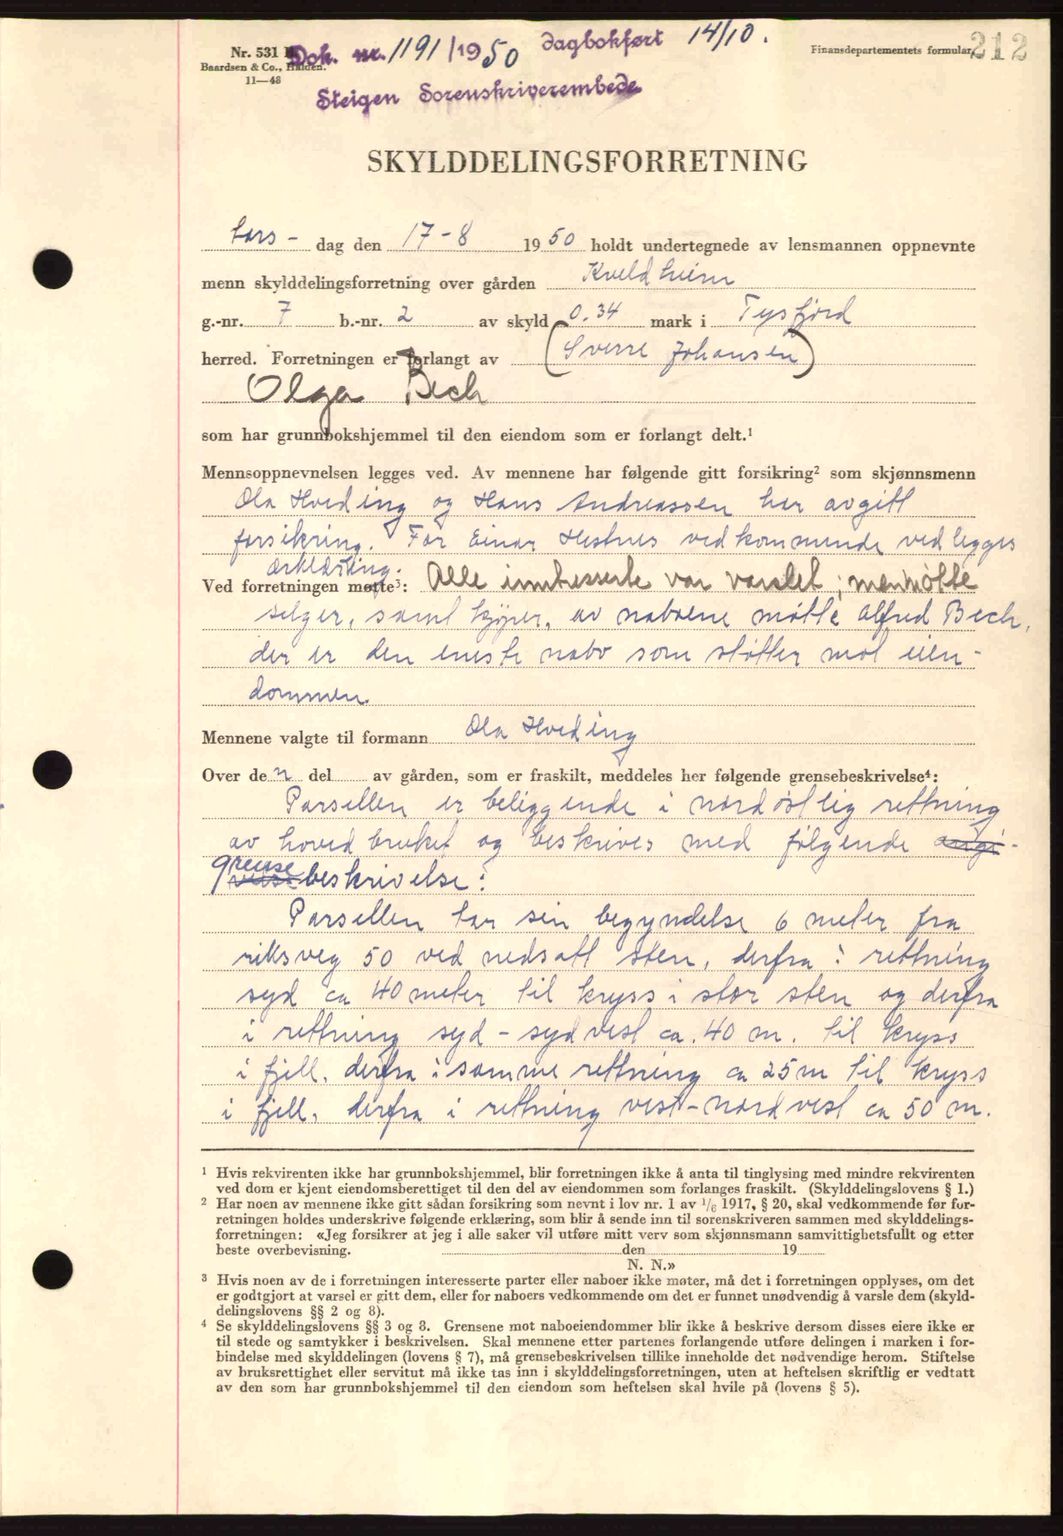 Nr. 531 B.
Baardsen & Co., Halden.
11—48
Dok. nr. 1191/1950 Dagbokført 14/10.
Steigen Sorenskriverembede
Finansdepartementets formular.
212
SKYLDDELINGSFORRETNING
Tors - dag den 17-8 1950 holdt undertegnede av lensmannen oppnevnte
menn skylddelingsforretning over gården Kveldheim
g.-nr. 7 b.-nr. 2 av skyld 0.34 mark i Tysfjord
herred. Forretningen er forlangt av (Sverre Johansen)
Olga Bech
som har grunnbokshjemmel til den eiendom som er forlangt delt.¹
Mennsoppnevnelsen legges ved. Av mennene har følgende gitt forsikring² som skjønnsmenn
Ola Hveding og Hans Andreassen har avgitt
forsikring. For Einar Hestnes vedkommende vedlegges
ærklæring.
Ved forretningen møtte³: Alle inntresserte var varslet, men møtte
selger, samt kjøper, av naboene møtte Alfred Bech,
der er den eneste nabo som støtter mot eien-
dommen.
Mennene valgte til formann Ola Hveding
Over den del av gården, som er fraskilt, meddeles her følgende grensebeskrivelse⁴:
Parsellen er beliggende i nordøstlig rettning
av hovedbruket og beskrives med følgende
grensebeskrivelse:
Parsellen tar sin begyndelse 6 meter fra
riksveg 50 ved nedsatt sten, derfra i rettning
syd ca 40 meter til kryss i stor sten og derfra
i rettning syd - syd vest ca. 40 m. til kryss
i fjell, derfra i samme rettning ca 25 m til kryss
i fjell, derfra i rettning vest-nordvest ca 50 m.
¹ Hvis rekvirenten ikke har grunnbokshjemmel, blir forretningen ikke å anta til tinglysing med mindre rekvirenten
ved dom er kjent eiendomsberettiget til den del av eiendommen som forlanges fraskilt. (Skylddelingslovens § 1.)
² Har noen av mennene ikke gitt sådan forsikring som nevnt i lov nr. 1 av 1/6 1917, § 20, skal vedkommende før for-
retningen holdes underskrive følgende erklæring, som blir å sende inn til sorenskriveren sammen med skylddelings-
forretningen: «Jeg forsikrer at jeg i alle saker vil utføre mitt verv som skjønnsmann samvittighetsfullt og etter
beste overbevisning. den 19
N. N.»
³ Hvis noen av de i forretningen interesserte parter eller naboer ikke møter, må det i forretningen opplyses, om det
er godtgjort at varsel er gitt dem, eller for naboers vedkommende om det er funnet unødvendig å varsle dem (skyld-
delingslovens §§ 2 og 8).
⁴ Se skylddelingslovens §§ 3 og 8. Grensene mot naboeiendommer blir ikke å beskrive dersom disses eiere ikke er
til stede og samtykker i beskrivelsen. Skal mennene etter partenes forlangende utføre delingen i marken i for-
bindelse med skylddelingen (lovens § 7), må grensebeskrivelsen tillike inneholde det nødvendige herom. Stiftelse
av bruksrettighet eller servitut må ikke tas inn i skylddelingsforretningen, uten at heftelsen skriftlig er vedtatt
av den som har grunnbokshjemmel til den eiendom som heftelsen skal hvile på (lovens § 5).